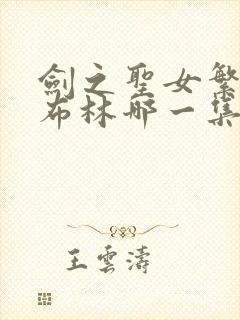 劍之聖女繁
布林哪一集
王雲濤